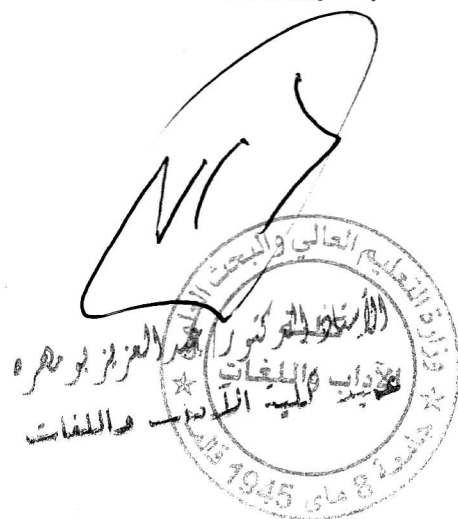 وزارة التعليم العالي والبحث العلمي
جامعة 8 ماي 1945 قالمة
الأستاذ الدكتور عبد العزيز بومهره
الآداب واللغات
كلية الآداب واللغات